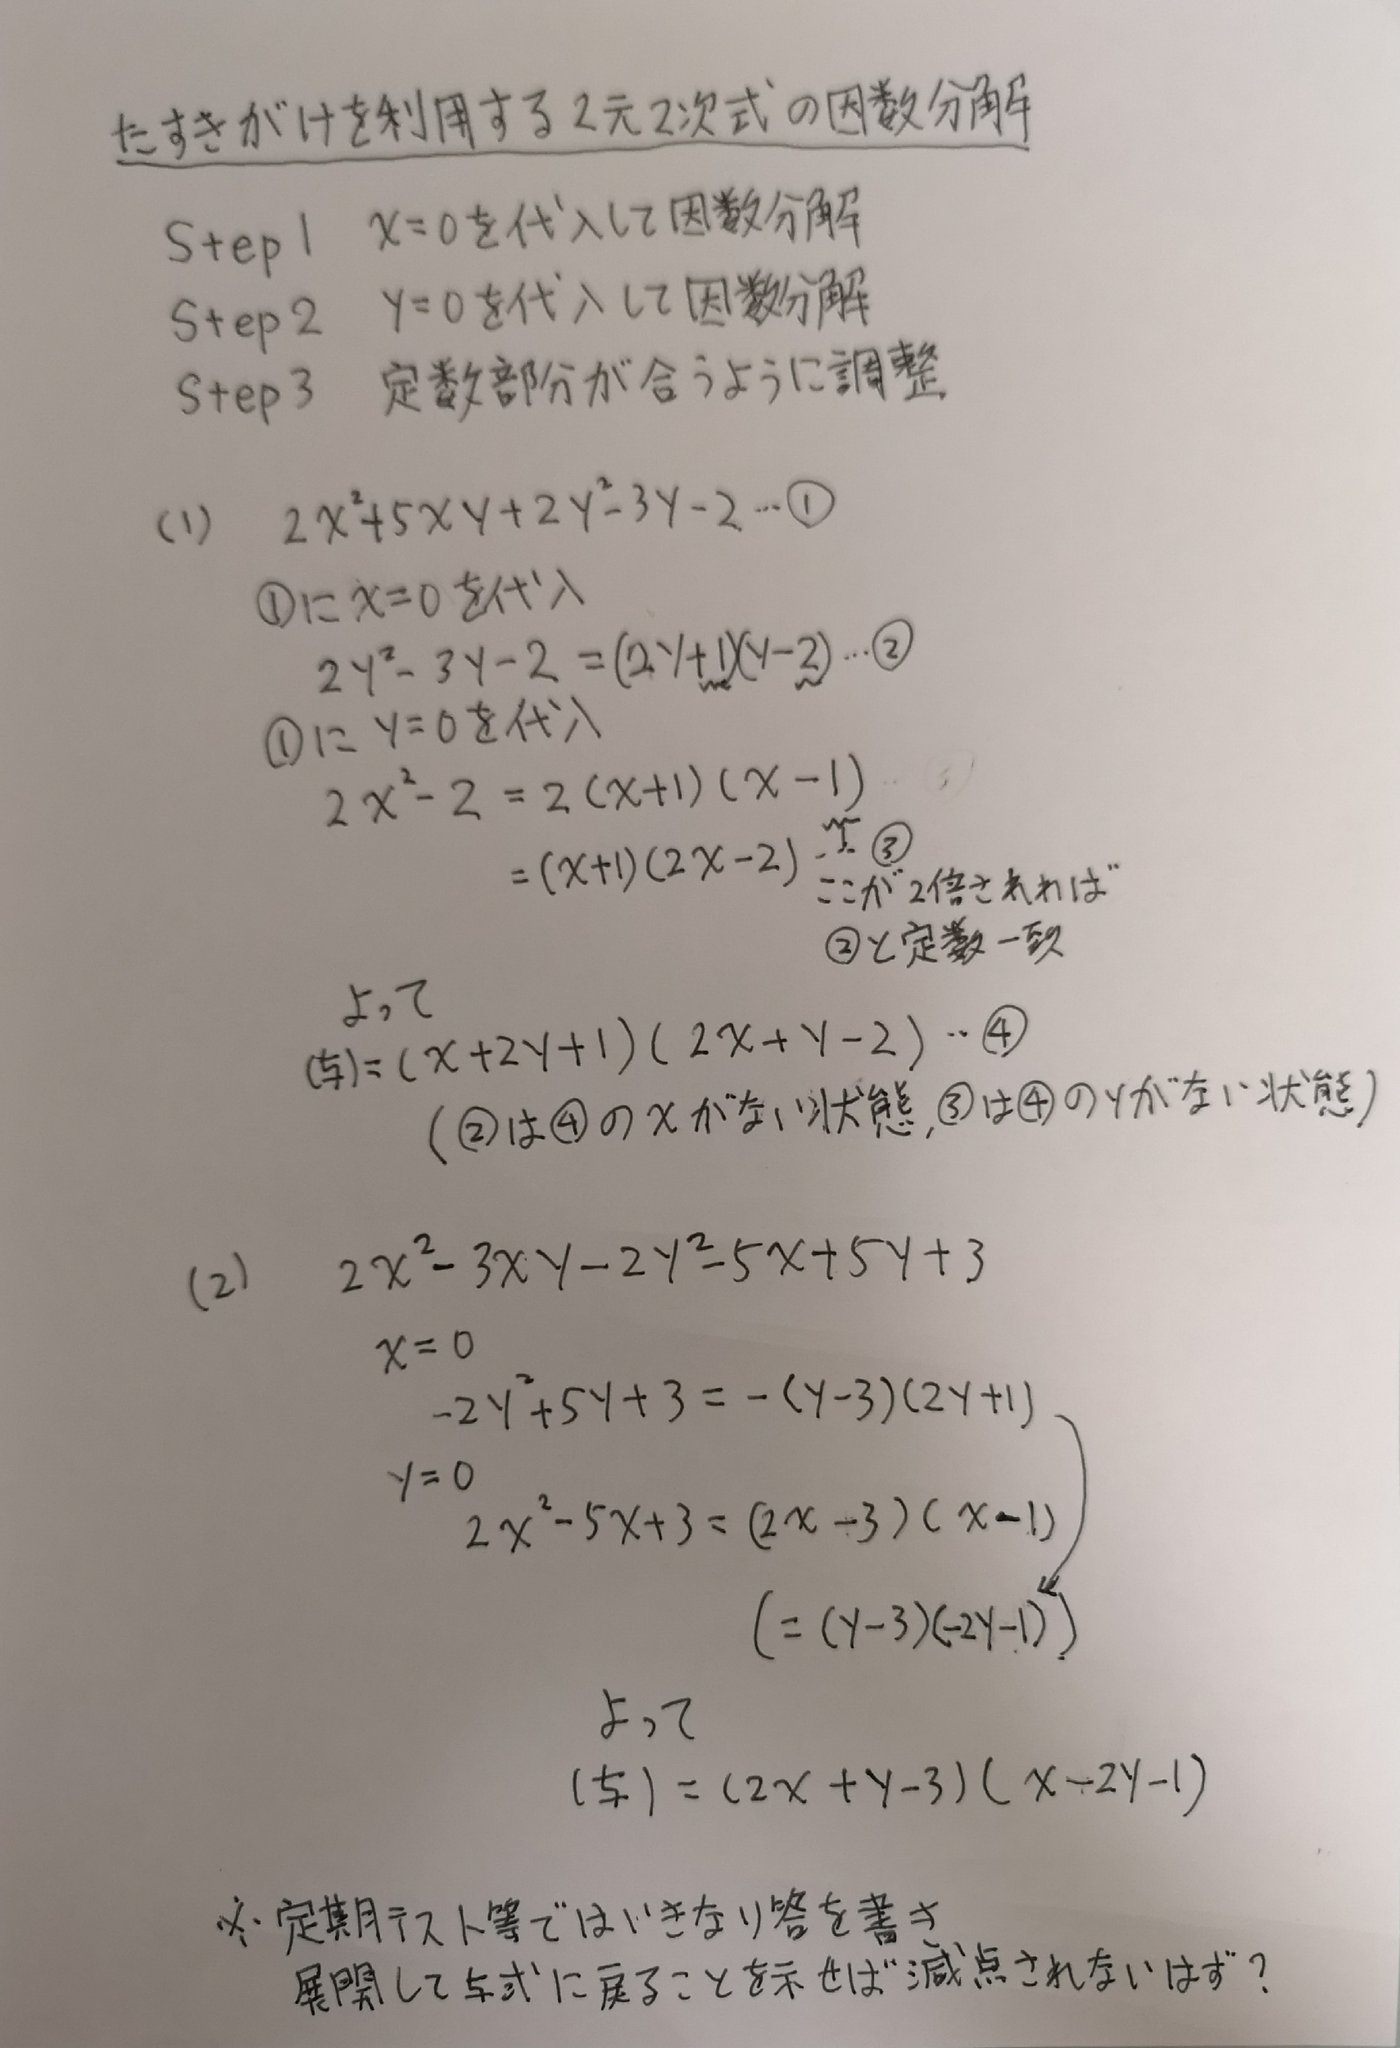 たすきがけを利用する2元2次式の因数分解
Step1 x=0を代入して因数分解
Step2 y=0を代入して因数分解
Step3 定数部分が合うように調整
(1) 2x²+5xy+2y²-3y-2…①
①にx=0を代入
2y²-3y-2=(2y+1)(y-2)…②
①にy=0を代入
2x²-2=2(x+1)(x-1)
=(x+1)(2x-2)…③
ここが2倍されれば
②と定数一致
よって
(与)=(x+2y+1)(2x+y-2)…④
(②は④のxがない状態,③は④のyがない状態)
(2) 2x²-3xy-2y²-5x+5y+3
x=0
-2y²+5y+3=-(y-3)(2y+1)
y=0
2x²-5x+3=(2x-3)(x-1)
(=(y-3)(-2y-1))
よって
(与)=(2x+y-3)(x-2y-1)
※定期テスト等ではいきなり答を書き
展開して与式に戻ることを示せば減点されないはず?